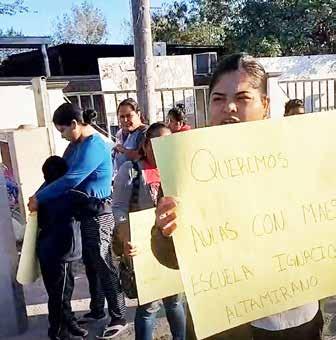 QUEREMOS
AULAS CON MAES
ESCUELA IGNACIO
ALTAMIRANO